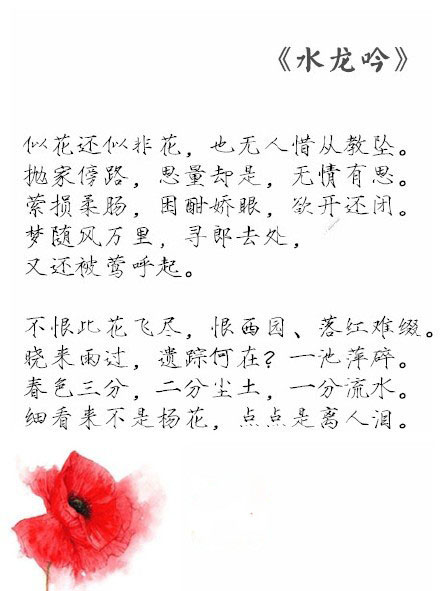 《水龙吟》
似花还似非花，也无人惜从教坠。
抛家傍路，思量却是，无情有思。
萦损柔肠，困酣娇眼，欲开还闭。
梦随风万里，寻郎去处，
又还被莺呼起。
不恨此花飞尽，恨西园、落红难缀。
晓来雨过，遗踪何在？一池萍碎。
春色三分，二分尘土，一分流水。
细看来不是杨花，点点是离人泪。